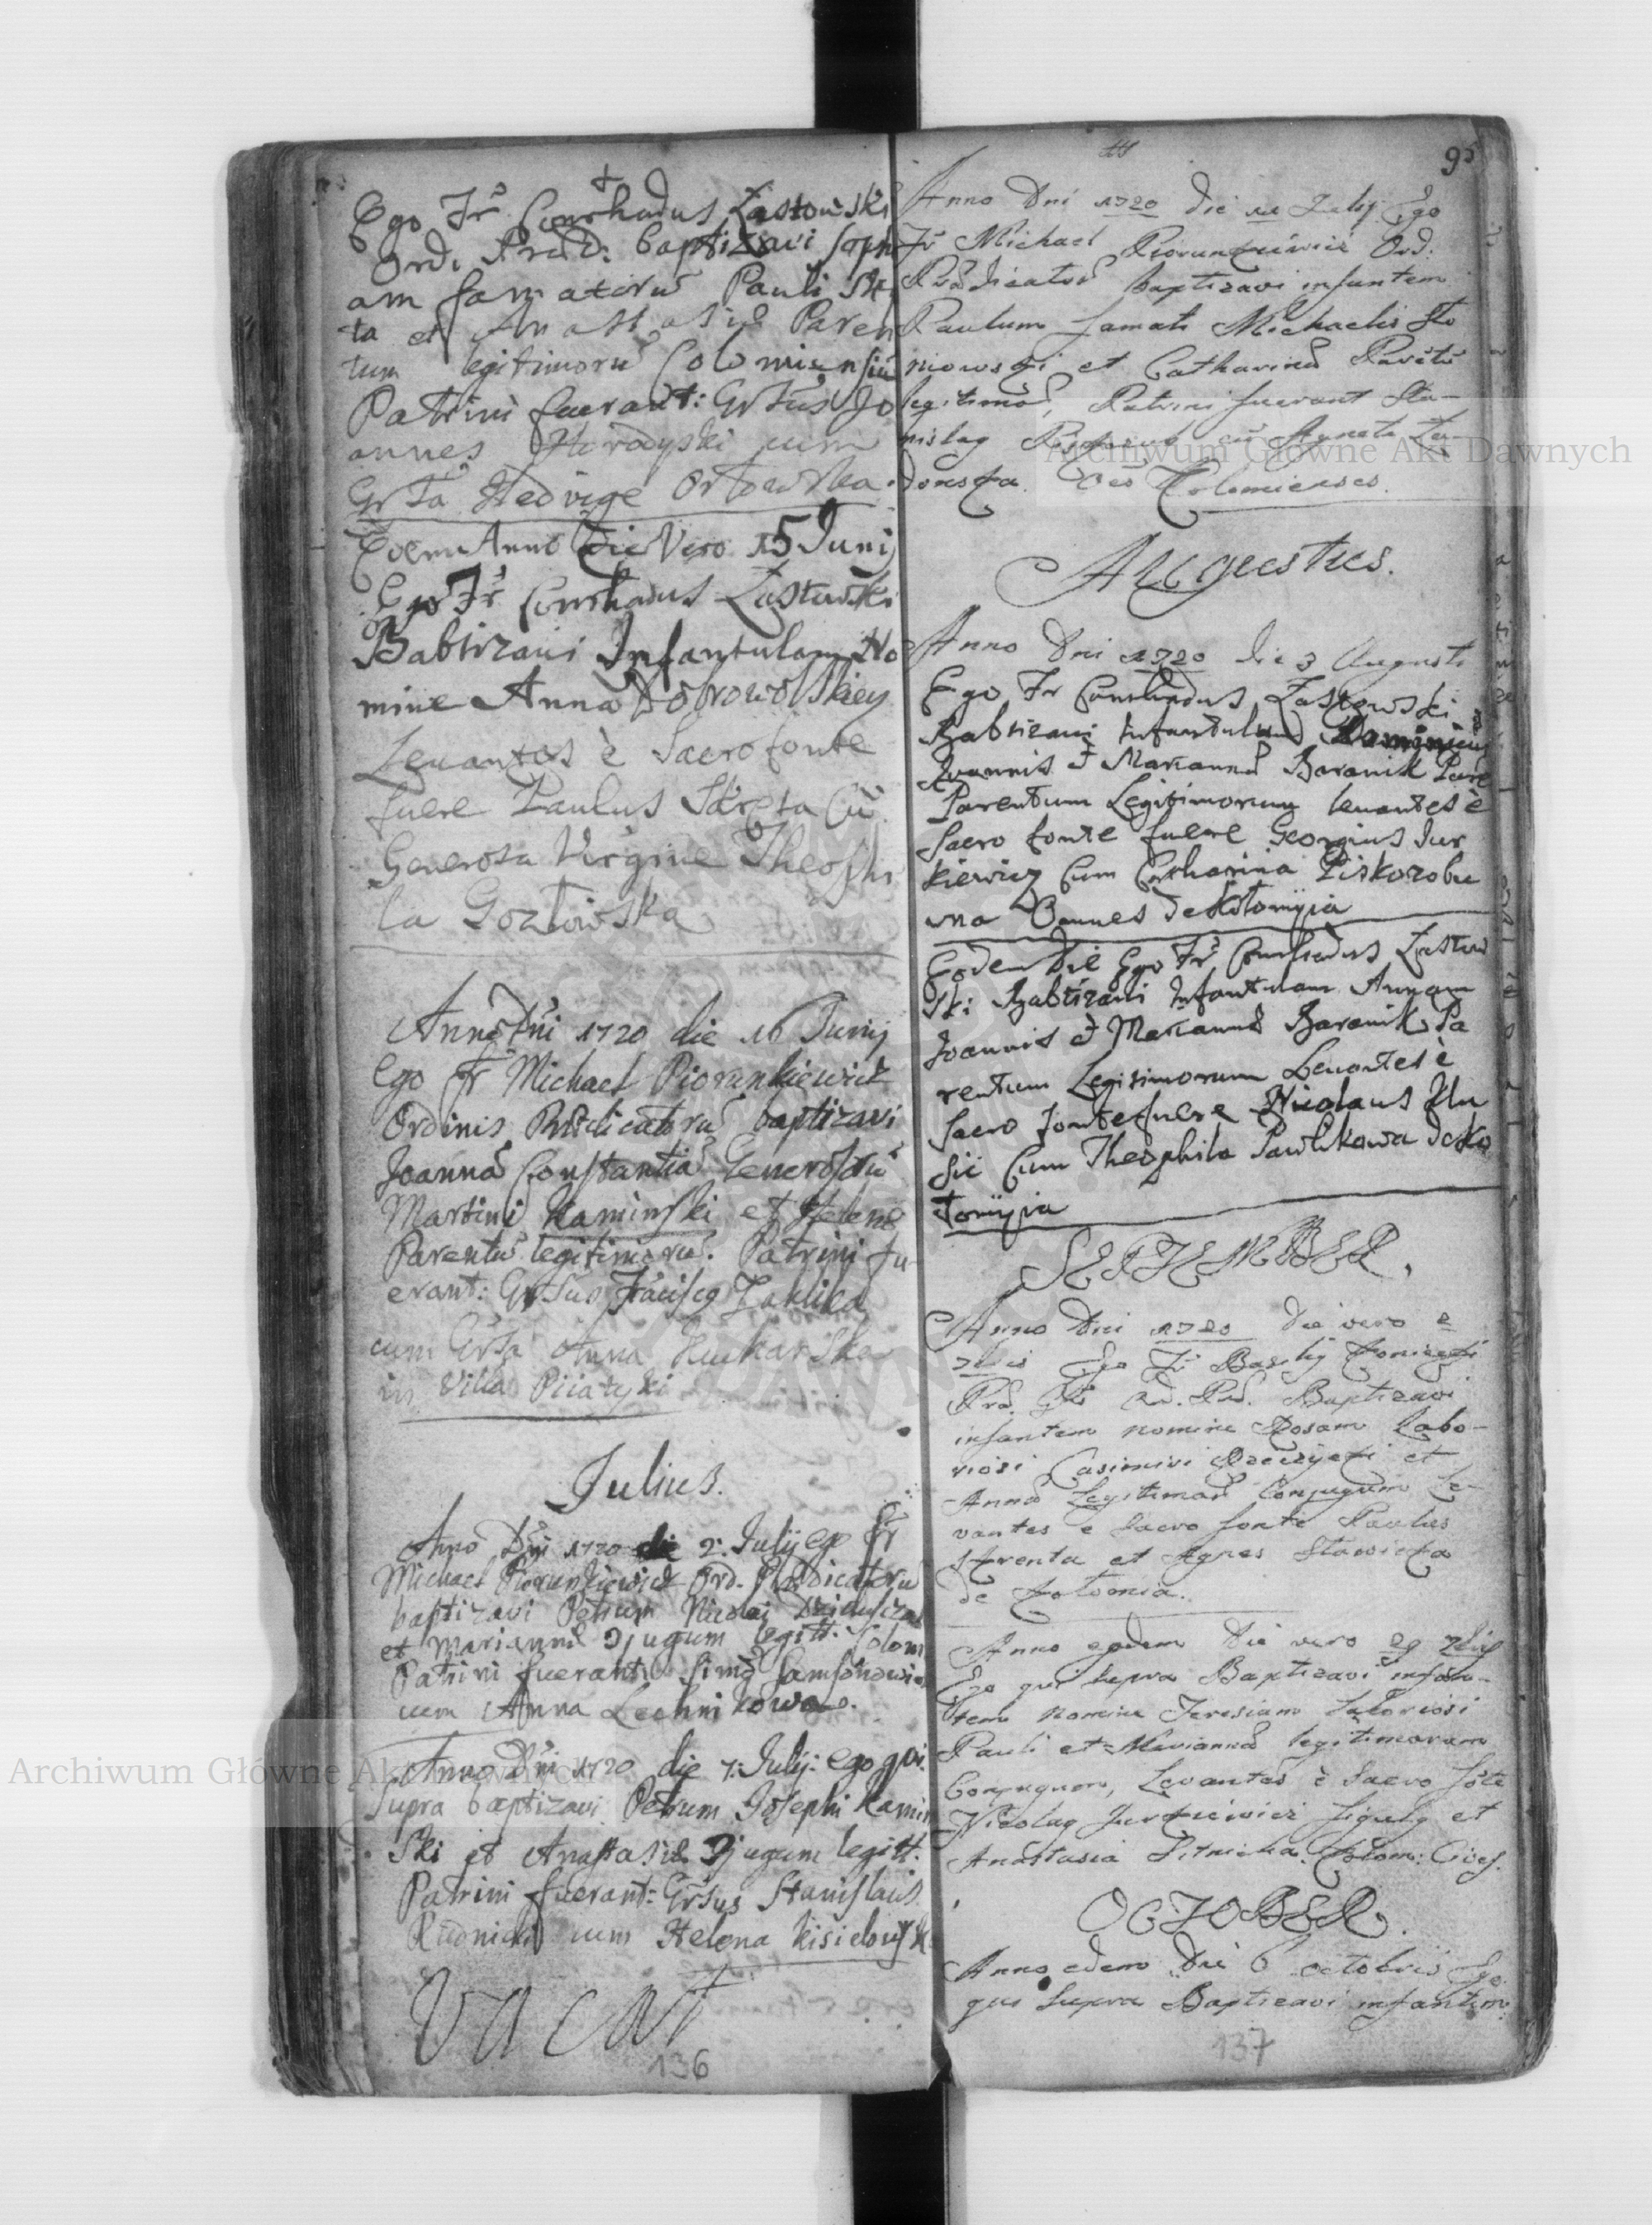 Ego Fr Conrhadus Zastowski
Ord. Præd: baptizavi Soph
am famatorũ Pauli Skr
ta et Anastasiæ Paren
tum legitimorũ Colomiensiũ
Patrini fuerant: Grsus Jo
annes Horodyski cum
Grsa Hedvige Orłowska.
Eodem Anno Die Vero 15 Junij
Ego Fr Conrhadus Zastowski
Babtizaui Infantulam No
mine Anna Dobrowolskiey
Leuantes è Sacro fonte
fuere Paulus Skreta Cũ
Generosa Virgine Theophi
la Gozłowska
Anno Dni 1720 die 16 Junij
Ego Fr Michael Piorunkiewicz
Ordinis Prædicatorũ baptizavi
Joannã Constantiã Generosorũ
Martini Kaminski et Helenæ
Parentũ legitimorũ. Patrini fu
erant: Grsus Frãciscg Zaklika
cum Grsa Anna Kucharska
in Villa Piiatyki
Julius.
Anno Dni 1720 die 2. Julij ego Fr
Michael Piorunkiewicz Ord. Prædicatorũ
baptizavi Petrum Nicolai
et Mariannæ Ɔjugum legitt. Colom
Patrini fuerant Simõ Samsonowic
cum Anna Lechnikowa.
Anno Dni 1720 die 7. Julij: ego qui
supra baptizavi Petrum Josephi Kamin
ski et Anastasiæ Ɔjugum legitt.
Patrini fuerant: Grsus Stanislaus
Rudnicki cum Helena Kisielowsk
Vacat
136
95
Anno Dni 1720 Die 11 Julij Ego
Fr Michael Piorunkiewicz Ord.
Prædicatorũ Baptizavi infantem
Paulum famati Michaelis Sto
niowski et Catharinæ Parẽtũ
legitimorũ, Patrini fuerant Sta-
nislag cũ Agneta Za
donska. Oẽs Colomienses.
Augustus.
Anno Dni 1720 die 3 Augusti
Ego Fr Conrhadus Zastowski
Babtizaui Infantulum Dominicũ
Joannis et Mariannæ Baranik Pare
Parentum Legitimorum leuantes è
Sacro fonte fuere Georgius Jur
kiewicz Cum Catharina Piskozobu
wna Omnes de Kołomyia
Eodem Die Ego Fr Conrhadus Zastow
ski: Babtizaui Infantulam Annam
Joannis et Mariannæ Baranik Pa
rentum Legitimorum Leuantes è
Sacro fonte fuere Nicolaus
Cum Theophila Pawlikowa de Ko
łomyia
SEPTEMBER.
Anno Dni 1720 Die vero 2
7bris Ego Fr Basilij
Baptizavi
infantem nomine Rosam Labo-
riosi Casimiri et
Annæ Legitimorũ Conjugum Le-
vantes e Sacro fonte Paulus
Skrenta et Agnes Stawicka
de Kołomia.
Anno eodem Die vero 29 7bris
Ego qui supra Baptizavi infan-
tem nomine Teresiam Laboriosi
Pauli et Mariannæ legitimorum
Conjugum, Levantes è Sacro fõte
Nicolag Jurkiewicz figulg et
Anastasia Sitnicka. Colom: Cives.
OCTOBER.
Anno eodem Die 6 octobris Ego
qui supra Baptizavi infantem
137
Archiwum Główne Akt Dawnych
Archiwum Główne Akt Dawnych